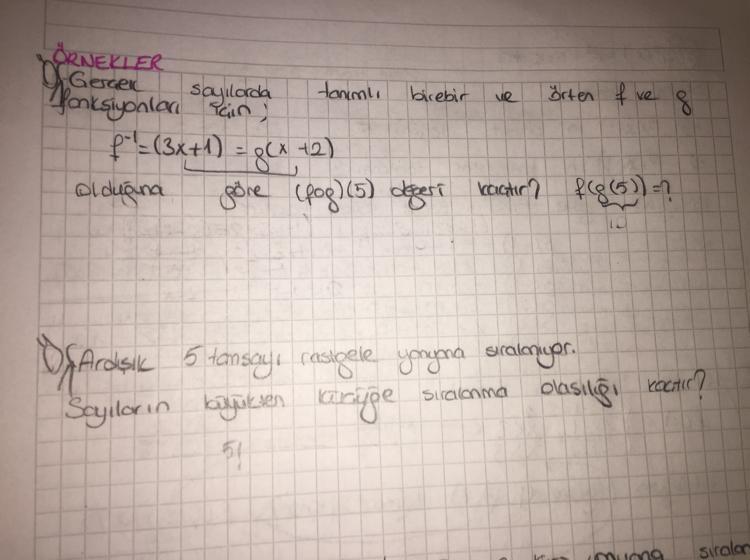 ÖRNEKLER
1) Gerçek sayılarda tanımlı birebir ve örten f ve g
fonksiyonları için;
f⁻¹=(3x+1) = g(x+2)
Olduğuna göre (fog)(5) değeri kaçtır? f(g(5))=?
1) Ardışık 5 tamsayı rastgele yanyana sıralanıyor.
Sayıların büyükten küçüğe sıralanma olasılığı kaçtır?
5!